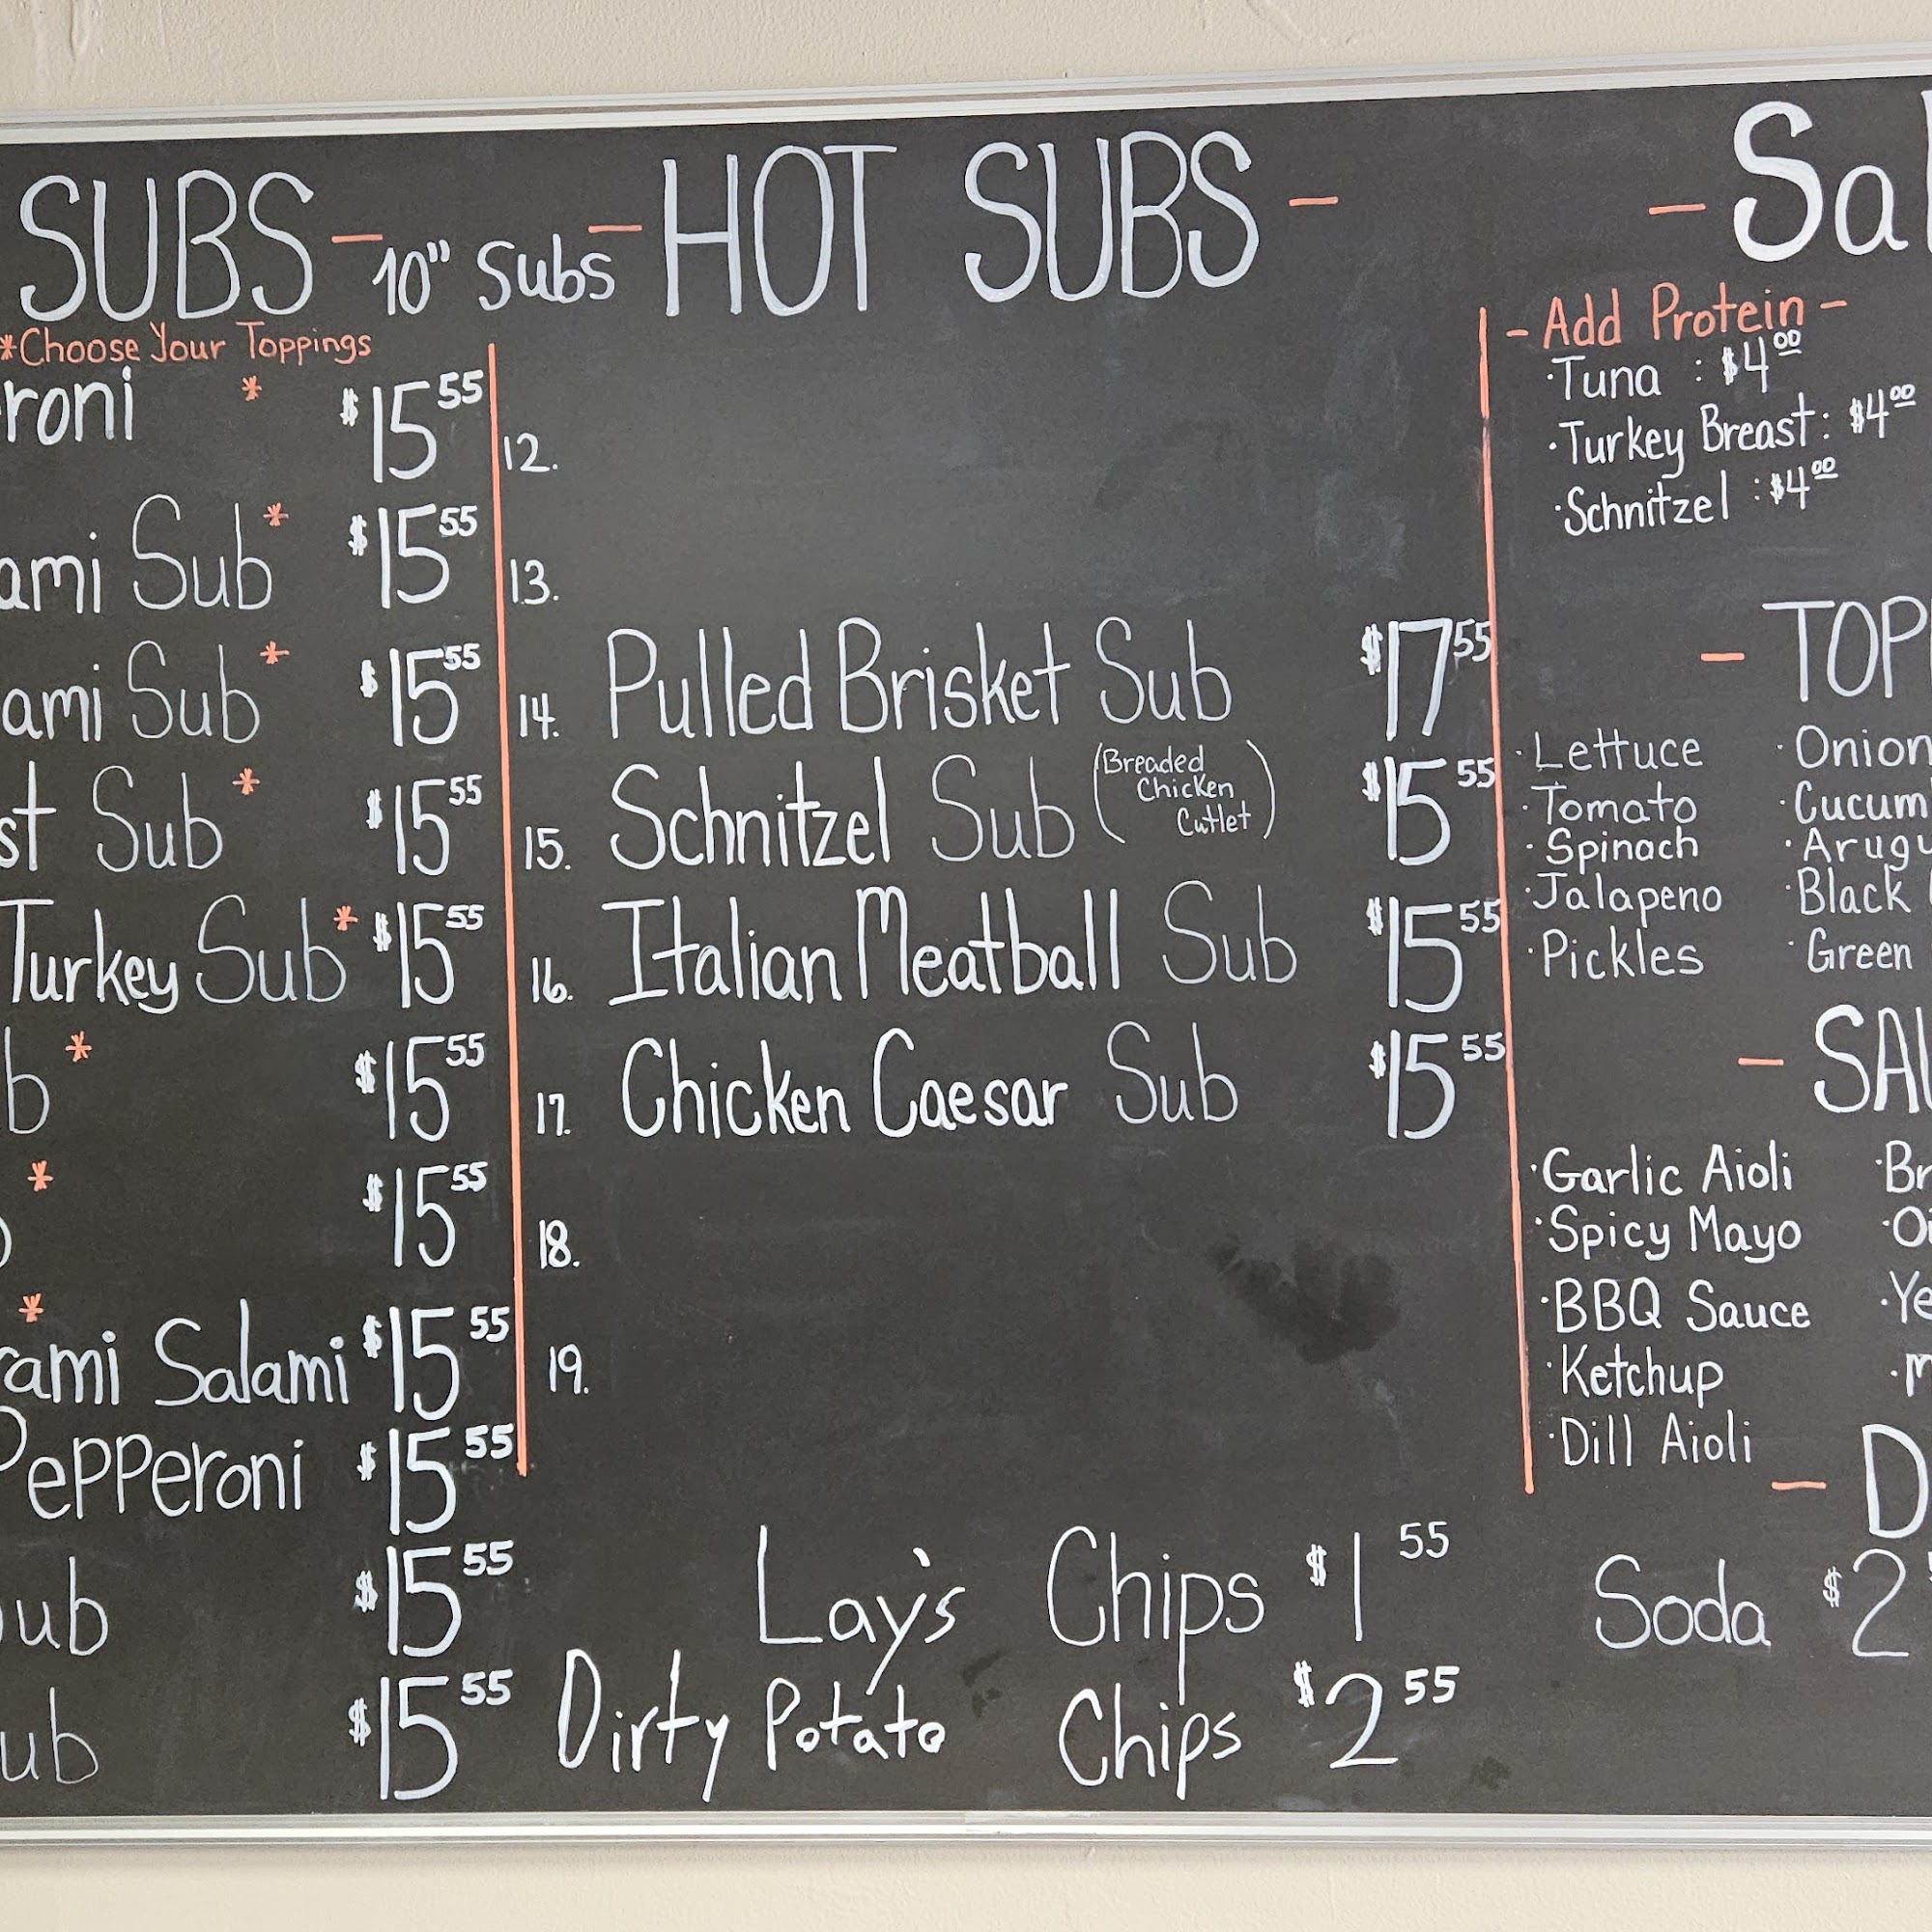 SUBS - 10" Subs
*Choose Your Toppings
roni * $15 55
ami Sub * $15 55
ami Sub * $15 55
st Sub * $15 55
Turkey Sub * $15 55
b * $15 55
* $15 55
* 
rami Salami $15 55
Pepperoni $15 55
ub $15 55
ub $15 55
- HOT SUBS -
12.
13.
14. Pulled Brisket Sub $17 55
15. Schnitzel Sub (Breaded Chicken Cutlet) $15 55
16. Italian Meatball Sub $15 55
17. Chicken Caesar Sub $15 55
18.
19.
Lay's Chips $1 55
Dirty Potato Chips $2 55
- Sal
- Add Protein -
·Tuna : $4 00
·Turkey Breast: $4 00
·Schnitzel : $4 00
- TOP
·Lettuce ·Onion
·Tomato ·Cucum
·Spinach ·Arugu
·Jalapeno ·Black
·Pickles ·Green
- SAU
·Garlic Aioli ·Br
·Spicy Mayo ·Oi
·BBQ Sauce ·Ye
·Ketchup
·Dill Aioli
- D
Soda $2